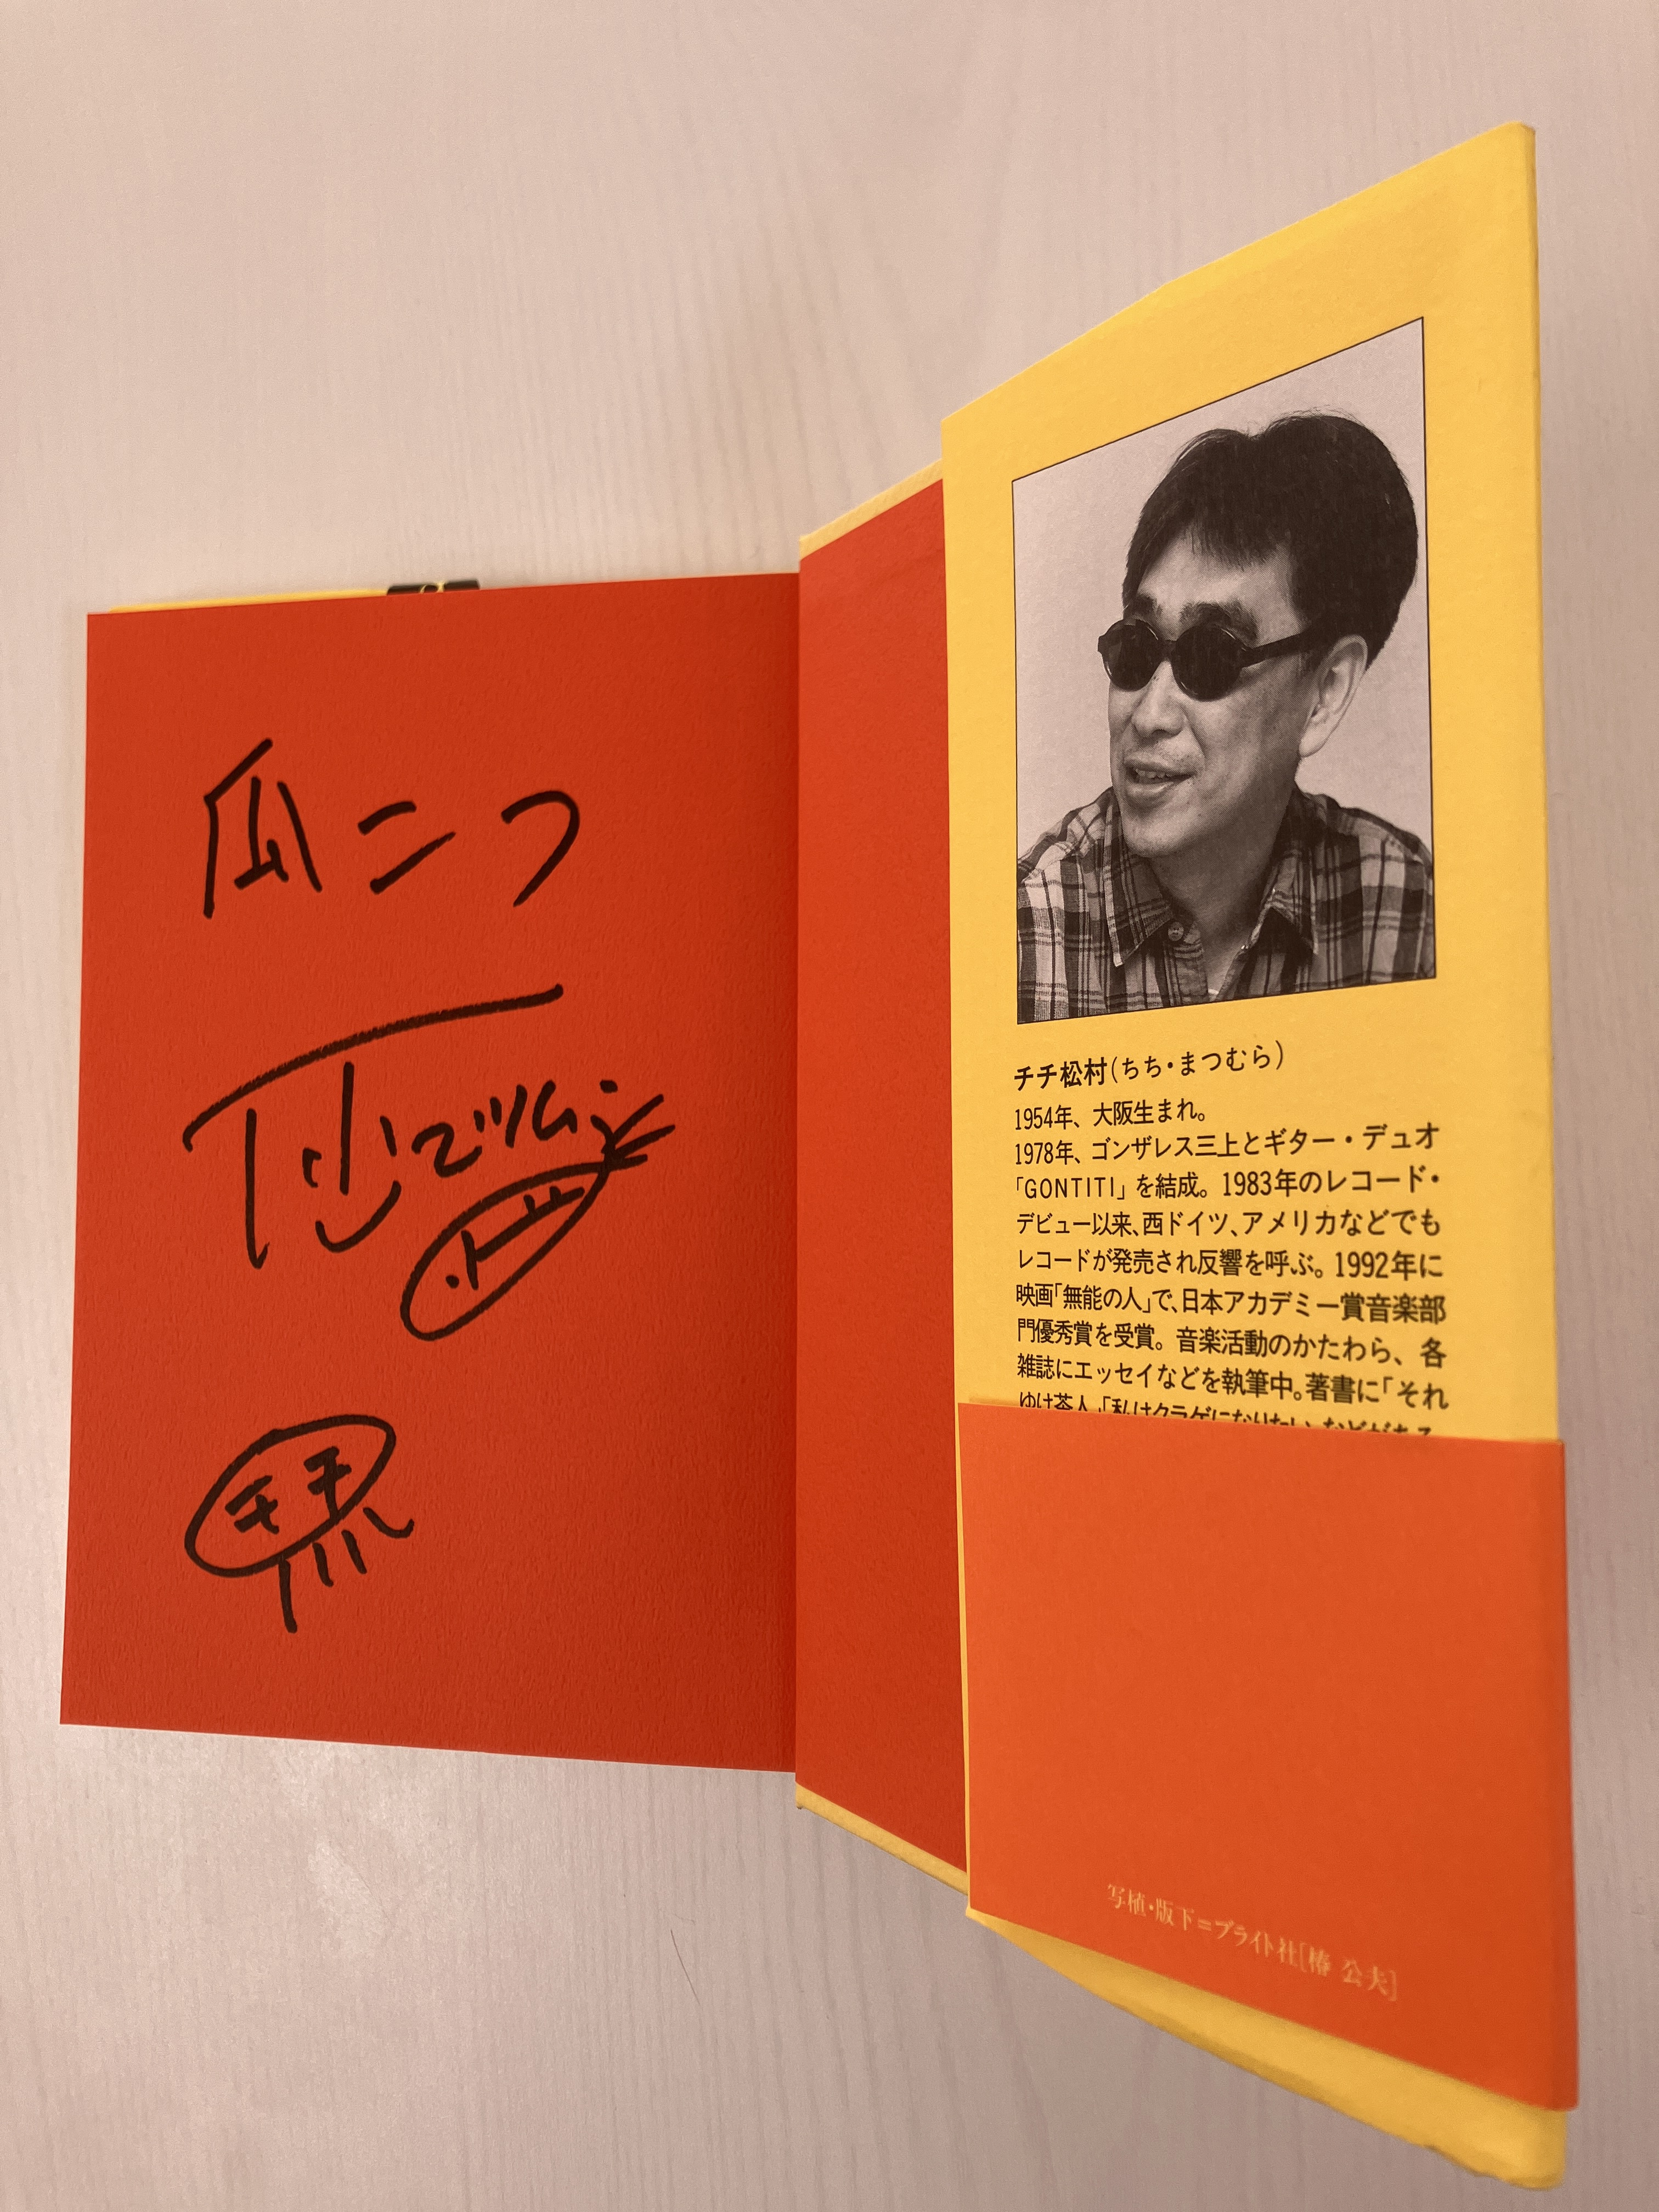 瓜二つ
チチ
チチ松村(ちち・まつむら)
1954年、大阪生まれ。
1978年、ゴンザレス三上とギター・デュオ
「GONTITI」を結成。1983年のレコード・
デビュー以来、西ドイツ、アメリカなどでも
レコードが発売され反響を呼ぶ。1992年に
映画「無能の人」で、日本アカデミー賞音楽部
門優秀賞を受賞。音楽活動のかたわら、各
雑誌にエッセイなどを執筆中。著書に「それ
ゆけ茶人」「私はクラゲになりたい」などがある。
写植・版下=ブライト社[椿 公夫]